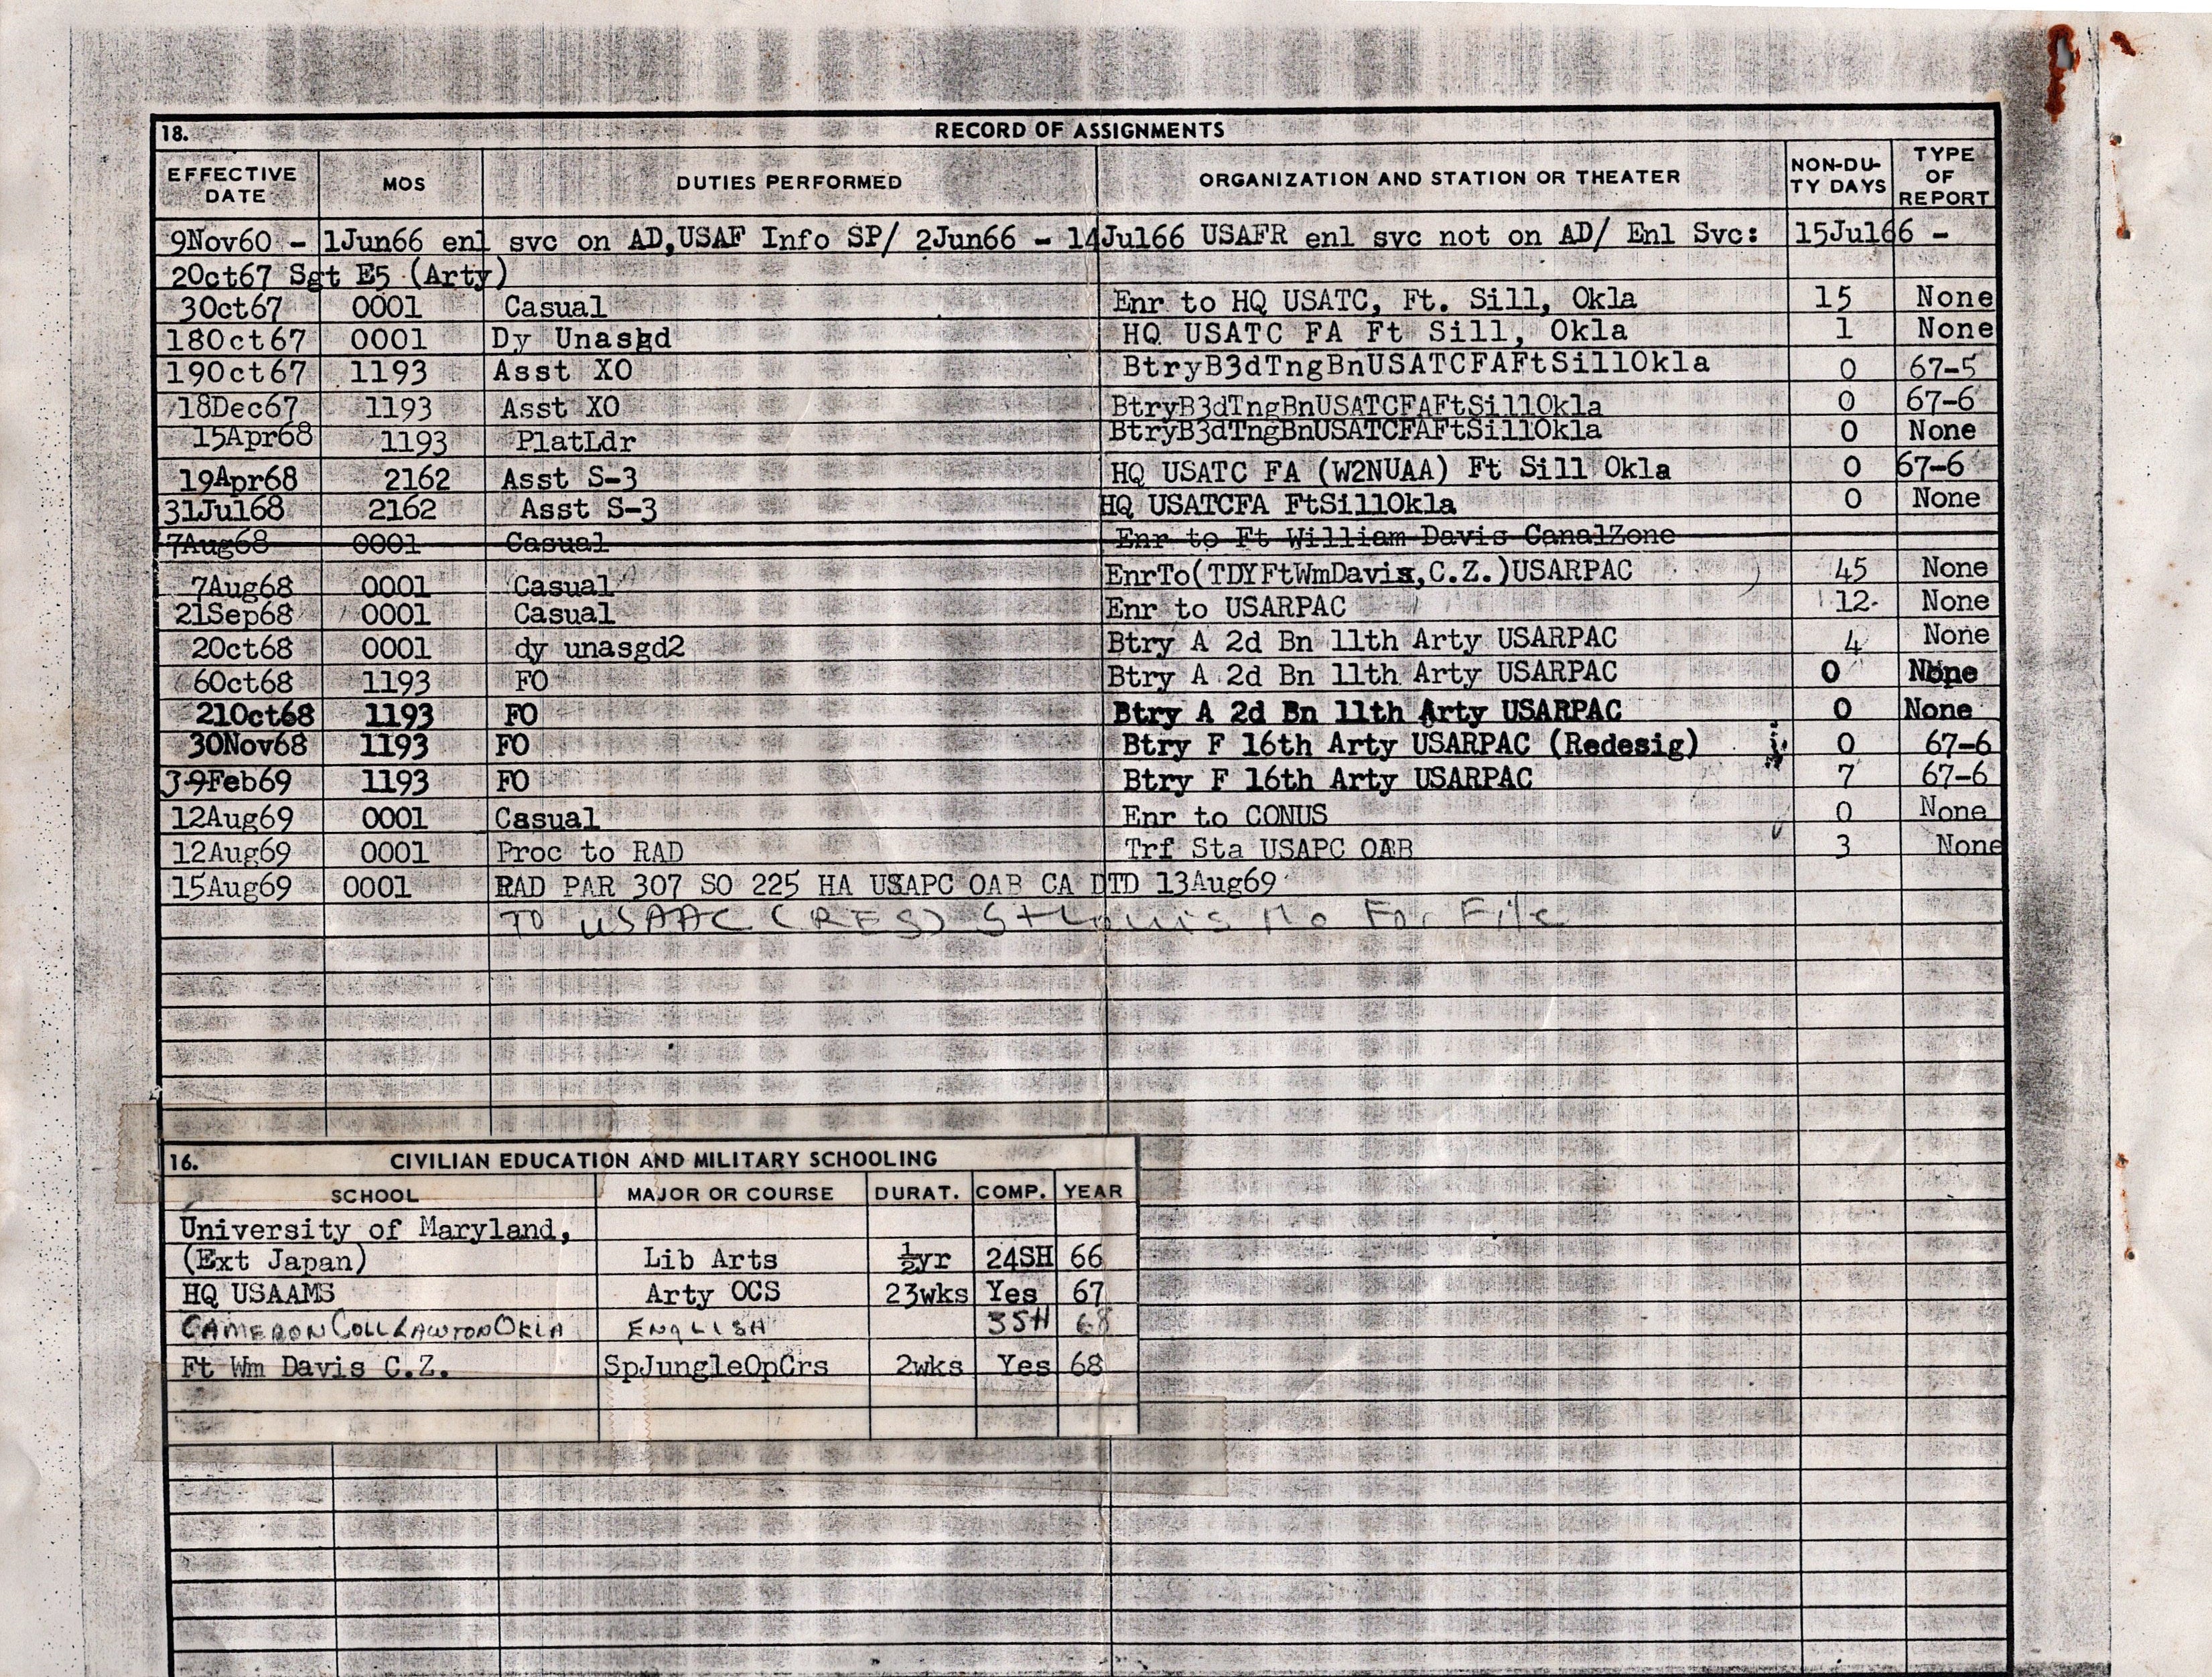 18. RECORD OF ASSIGNMENTS
EFFECTIVE DATE MOS DUTIES PERFORMED ORGANIZATION AND STATION OR THEATER NON-DU-TY DAYS TYPE OF REPORT
9Nov60 - 1Jun66 enl svc on AD,USAF Info SP/ 2Jun66 - 14Jul66 USAFR enl svc not on AD/ Enl Svc: 15Jul66 -
2Oct67 Sgt E5 (Arty)
3Oct67 0001 Casual Enr to HQ USATC, Ft. Sill, Okla 15 None
18Oct67 0001 Dy Unasgd HQ USATC FA Ft Sill, Okla 1 None
19Oct67 1193 Asst XO BtryB3dTngBnUSATCFAFtSillOkla 0 67-5
18Dec67 1193 Asst XO BtryB3dTngBnUSATCFAFtSillOkla 0 67-6
15Apr68 1193 PlatLdr BtryB3dTngBnUSATCFAFtSillOkla 0 None
19Apr68 2162 Asst S-3 HQ USATC FA (W2NUAA) Ft Sill Okla 0 67-6
31Jul68 2162 Asst S-3 HQ USATCFA FtSillOkla 0 None
7Aug68 0001 Casual Enr to Ft William Davis CanalZone
7Aug68 0001 Casual EnrTo(TDYFtWmDavis,C.Z.)USARPAC 45 None
21Sep68 0001 Casual Enr to USARPAC 12 None
2Oct68 0001 dy unasgd2 Btry A 2d Bn 11th Arty USARPAC 4 None
6Oct68 1193 FO Btry A 2d Bn 11th Arty USARPAC 0 None
21Oct68 1193 FO Btry A 2d Bn 11th Arty USARPAC 0 None
30Nov68 1193 FO Btry F 16th Arty USARPAC (Redesig) 0 67-6
9Feb69 1193 FO Btry F 16th Arty USARPAC 7 67-6
12Aug69 0001 Casual Enr to CONUS 0 None
12Aug69 0001 Proc to RAD Trf Sta USAPC OAB 3 None
15Aug69 0001 RAD PAR 307 SO 225 HA USAPC OAB CA DTD 13Aug69
TO USAAC (RES) St Louis Mo For File
16. CIVILIAN EDUCATION AND MILITARY SCHOOLING
SCHOOL MAJOR OR COURSE DURAT. COMP. YEAR
University of Maryland,
(Ext Japan) Lib Arts ½yr 24SH 66
HQ USAAMS Arty OCS 23wks Yes 67
CAMERON COLL LAWTON OKLA ENGLISH 3SH 68
Ft Wm Davis C.Z. SpJungleOpCrs 2wks Yes 68